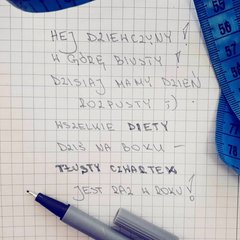 HEJ DZIEWCZYNY !
W GÓRĘ BIUSTY !
DZISIAJ MAMY DZIEŃ
ROZPUSTY ;)
WSZELKIE DIETY
DZIŚ NA BOKU -
TŁUSTY CZWARTEK
JEST RAZ W ROKU !
55
56
58
59